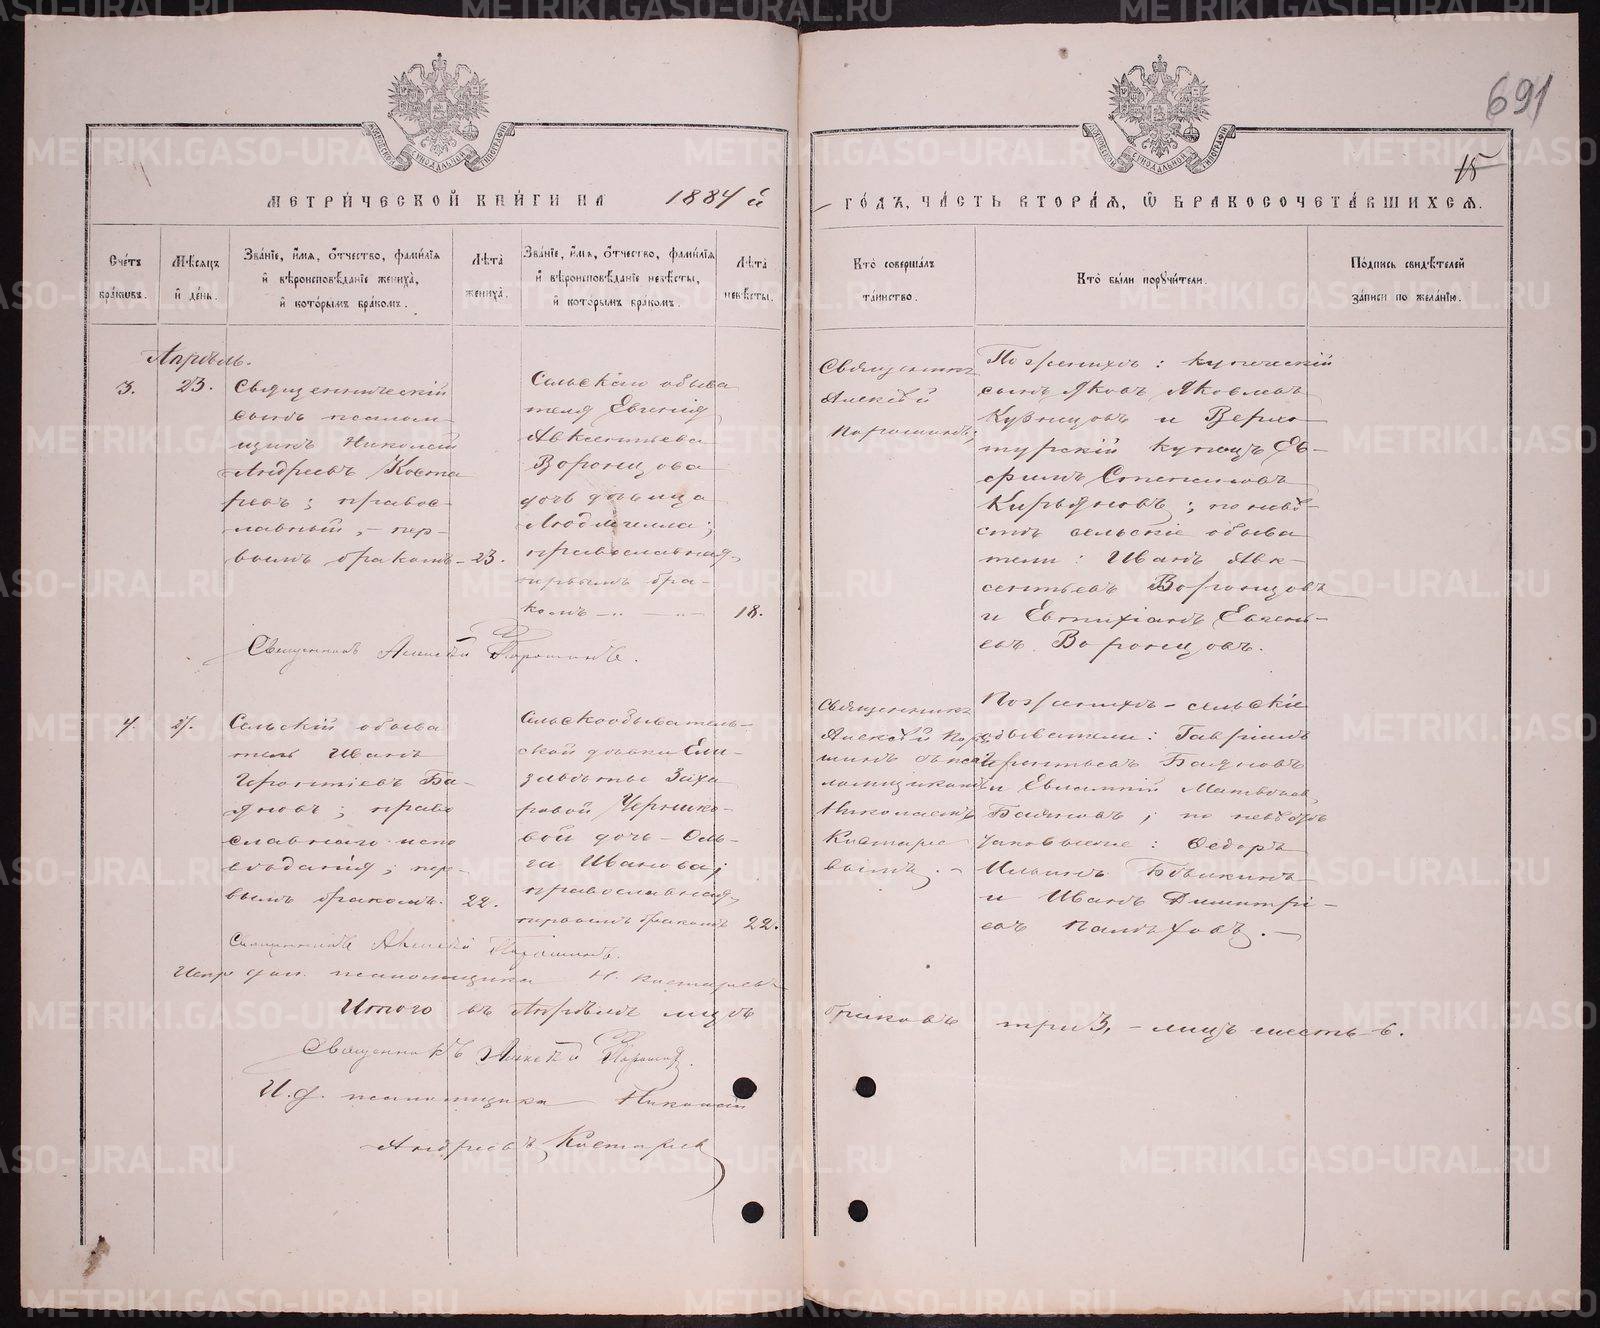 691
15
МЕТРИ́ЧЕСКОЙ КНИ́ГИ НА 1884 й
ГО́ДЪ, ЧА́СТЬ ВТОРА́Я, Ѿ БРАКОСОЧЕТА́ВШИХСѦ.
Сче́тъ бра́кѡвъ.
Мѣ́сѧцъ и҆ де́нь.
Зва́нїе, и҆́мѧ, ѻ҆́тчество, фами́лїѧ
и҆ вѣроисповѣ́данїе жениха̀,
и҆ кото́рымъ бра́комъ.
Лѣ́та жениха̀.
Зва́нїе, и҆́мѧ, ѻ҆́тчество, фами́лїѧ
и҆ вѣроисповѣ́данїе невѣ́сты,
и҆ кото́рымъ бра́комъ.
Лѣ́та невѣ́сты.
Кто̀ соверша́лъ
та́инство.
Кто̀ бы́ли порꙋчи́тели.
По́дпись свидѣ́телей
за́писи по жела́нїю.
Апрѣль.
3.
23.
Священническій
сынъ псалом
щикъ Николай
Андреевъ Коста
ревъ; правос-
лавный, - пер-
вымъ бракомъ -
23.
Сельскаго обыва
теля Евгенія
Авксентьева
Воронцова
дочь дѣвица
Людмилла;
православная,
первымъ бра-
комъ
18.
Священникъ
Алексѣй
Порошинъ;
По женихѣ: купеческій
сынъ Яковъ Яковлевъ
Кузнецовъ и Верхо
турскій купецъ Ев-
фимъ Степановъ
Кирьяновъ; по невѣ
стѣ сельскіе обыва
тели: Иванъ Авк-
сентьевъ Воронцовъ
и Евтихіанъ Евгень-
евъ Воронцовъ.
Священникъ Алексѣй Порошинъ.
4.
27.
Сельскій обыва
тель Иванъ
Геронтіевъ Ба-
яновъ; право
славнаго испо
вѣданія; пер-
вымъ бракомъ.
22.
Сельскообыватель-
ской дѣвки Ели-
заветы Заха
ровой
вой дочь - Оль-
га Иванова;
православная,
первымъ бракомъ
22.
Священникъ
Алексѣй Поро
шинъ съ пса
ломщикомъ
Николаемъ
Костаре
вымъ. -
По женихѣ - сельскіе
обыватели: Гавріилъ
Геронтьевъ Баяновъ
и Матвѣевъ
Баяновъ; по невѣстѣ
таковые же: Ѳедоръ
Ильинъ
и Иванъ Димитрі-
евъ
Священникъ Алексѣй Порошинъ.
Испр. дол. псаломщика Н. Костаревъ
Итого въ Апрѣлѣ мцѣ
браковъ три 3, - лицъ шесть 6.
Священникъ Алексѣй Порошинъ.
И. д. псаломщика Николай
Андреевъ Костаревъ